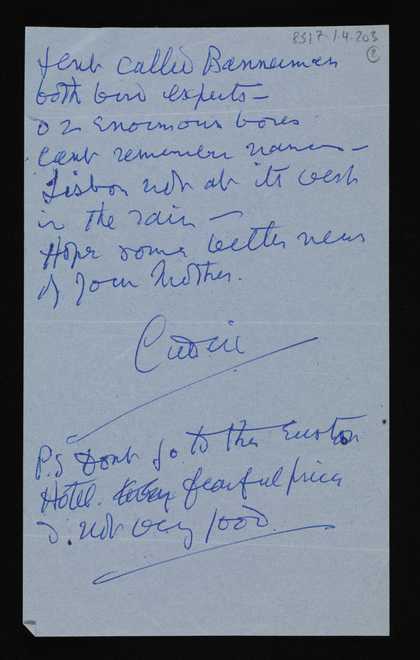 8517/1.4.203
2
called Bannerman
both bird experts -
02 enormous bores
cant remember names -
Lisbon not at its best
in the rain -
Hope some better news
of your Mother.
P.S Dont go to the
Hotel. fearful price
&. not very good